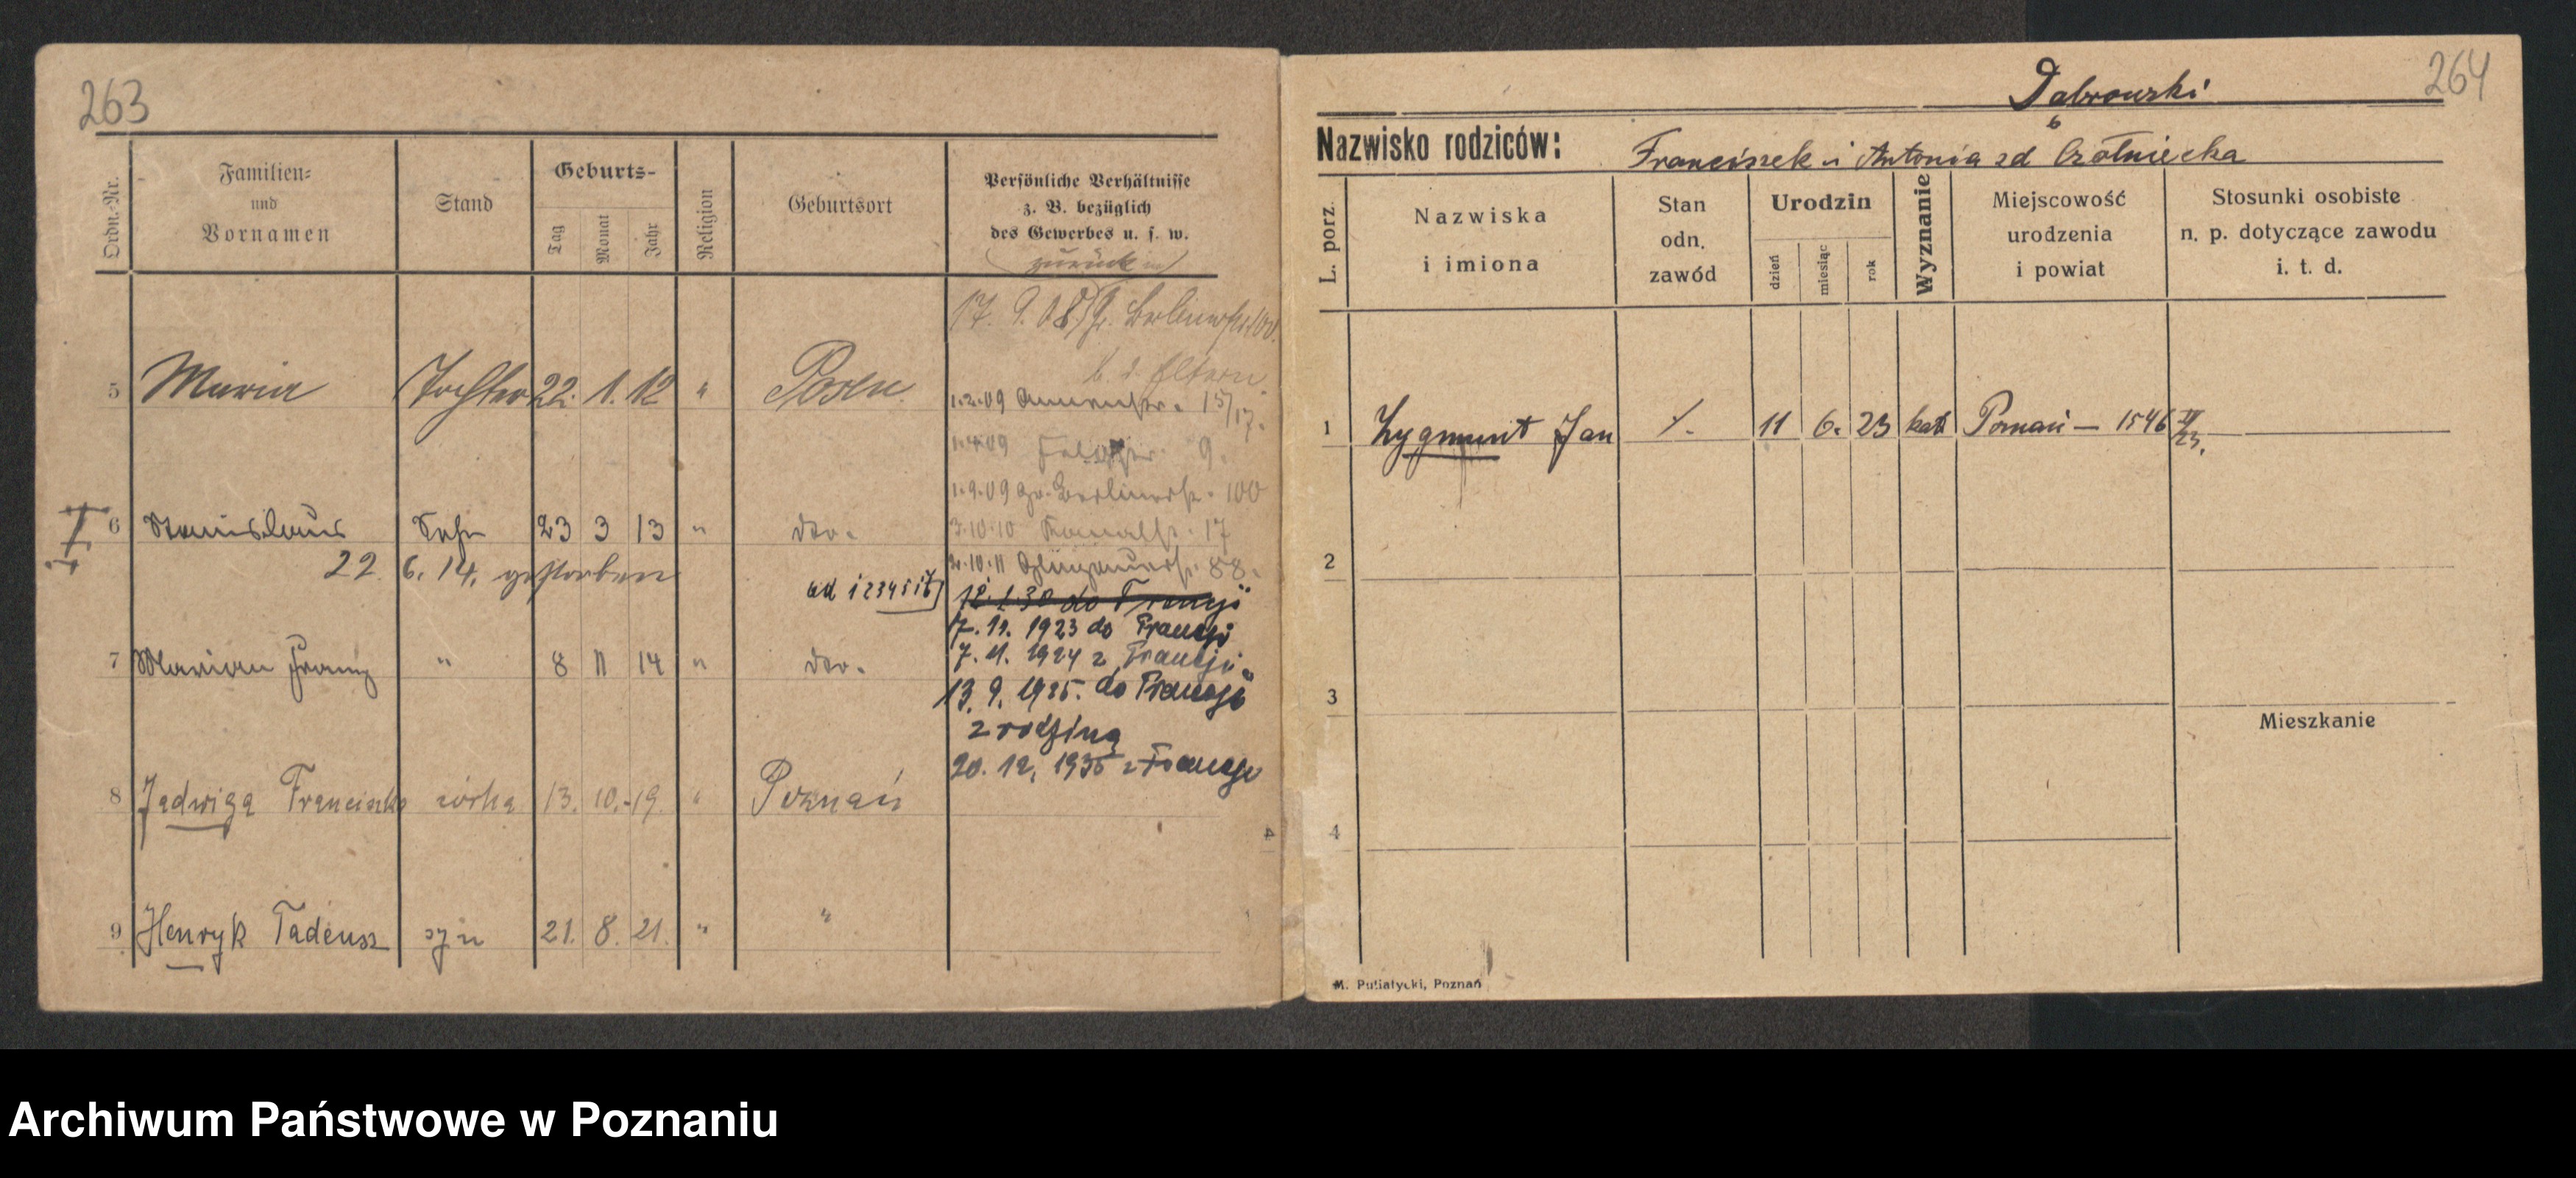 263
Ordn.-Nr.
Familien=
und
Vornamen
Stand
Geburts-
Tag
Monat
Jahr
Religion
Geburtsort
Persönliche Verhältnisse
z. B. bezüglich
des Gewerbes u. s. w.
17. 9. 08 Berlinerstr. 100
b. d. Eltern.
5 Maria Tochter 22. 1. 12 " Posen.
1.2.09 15/17.
1.4.09 9.
1.9.09 Gr. Berlinerstr. 100
6 Stanislaus Sohn 23 3 13 " do.
3.10.10 Kanalstr. 17
22. 6. 14. gestorben
88.
ad 1 2 3 4 5 i 7)
do Francji
7. 11. 1923 do Francji
7 Marian Franz " 8 11 14 " do.
7. 11. 1924 z Francji
13. 9. 1925. do Francji
z rodziną
20. 12. 1935 z Francji
8 Jadwiga Franciszka córka 13. 10. 19. " Poznań
9 Henryk Tadeusz syn 21. 8. 21. " "
4
264
Dąbrowski
6
Nazwisko rodziców: Franciszek i Antonia zd Czółniecka
L. porz.
Nazwiska
i imiona
Stan
odn.
zawód
Urodzin
dzień
miesiąc
rok
Wyznanie
Miejscowość
urodzenia
i powiat
Stosunki osobiste
n. p. dotyczące zawodu
i. t. d.
1 Zygmunt Jan 11 6. 23 kat Poznań — 1546 IV/23.
2
3
Mieszkanie
4
M. Putiatycki, Poznań
Archiwum Państwowe w Poznaniu